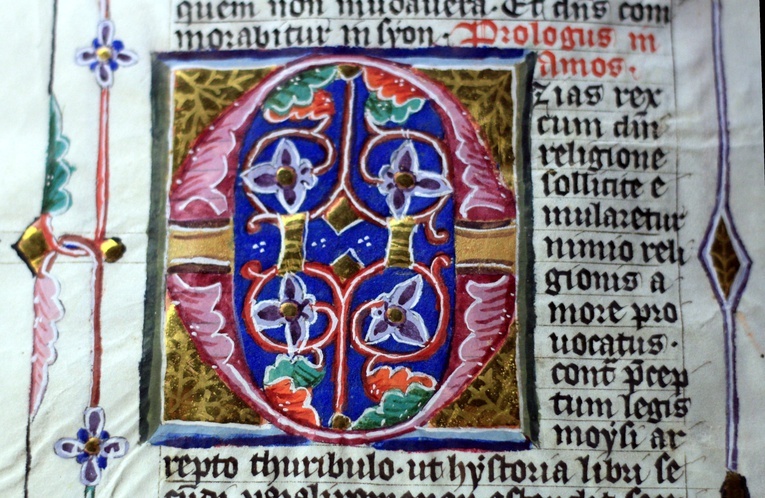 quem non mundauerā. Et dn̄s com
morabitur in syon. Prologus in
amos.
Ozias rex
cum dn̄i
religione
sollicite e
mularetur
nimio reli
gionis a
more pro
uocatus.
cont̄ p̄cep
tum legis
moẏsi ar
repto thuribulo. ut hẏstoria libri se